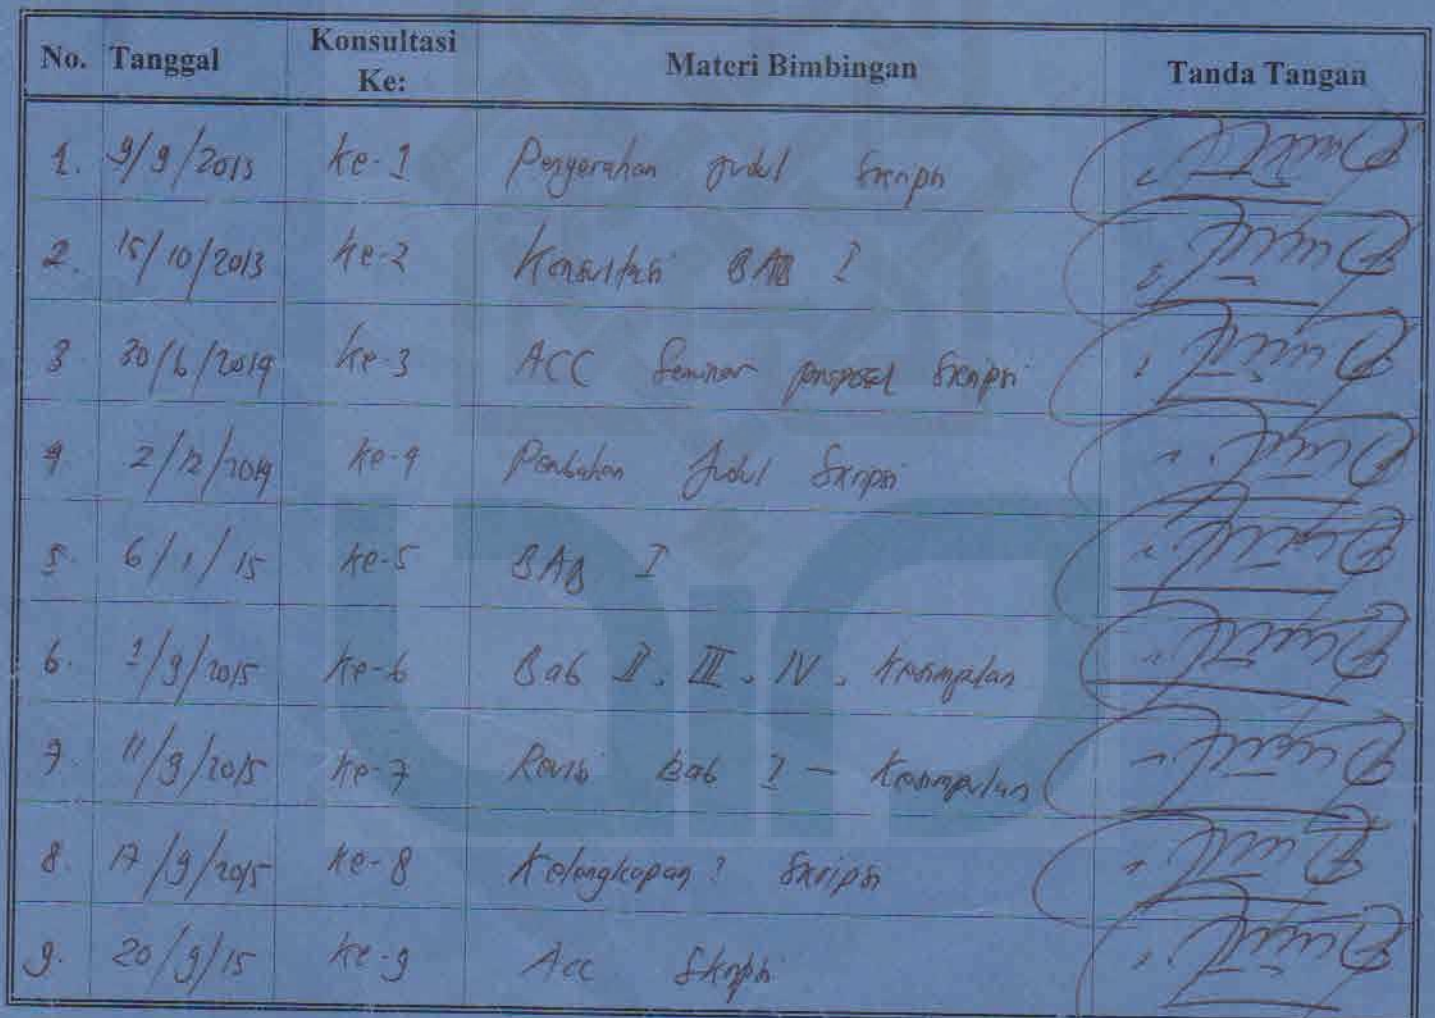 No. Tanggal Konsultasi Ke: Materi Bimbingan Tanda Tangan
1. 9/9/2013 ke-1 Penyerahan judul Skripsi
2. 15/10/2013 ke-2 Konsultasi BAB I
3. 30/6/2014 ke-3 ACC Seminar proposal Skripsi
4 2/12/2014 ke-4 Perubahan Judul Skripsi
5. 6/1/15 ke-5 BAB I
6. 1/9/2015 ke-6 Bab II, III, IV, Kesimpulan
7. 11/9/2015 ke-7 Revisi Bab I - Kesimpulan
8. 17/9/2015 ke-8 Kelengkapan² Skripsi
9. 20/9/15 ke-9 Acc Skripsi